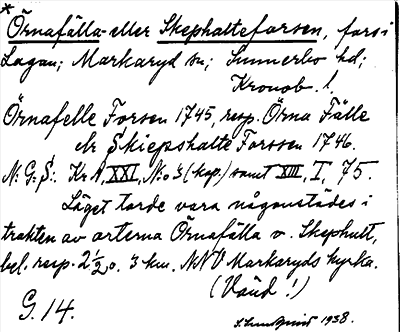 * Örnafälla- eller Skephalteforsen, fors i
Lagan; Markaryd sn; Sunnerbo hd;
Kronob. l.
Örnafelle Forsen 1745, resp. Örna Fälle
elr Skiepshalte Forssen 1746.
N: G. S:. Kr A, XXI, N:o 3 (kap.) samt XIII, I, 75.
Läget torde vara någonstädes i
trakten av orterna Örnafälla o. Skephult,
bel. resp. 2½ o. 3 km. NNV Markaryds kyrka.
(Vänd!)
G. 14.
S. Lundqvist 1938.